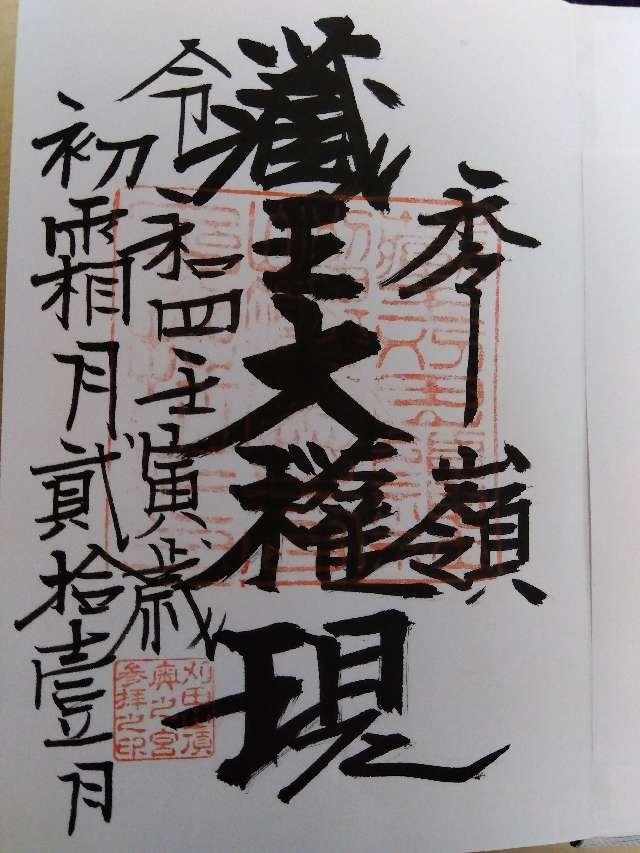 秀嶺
蔵王大権現
令和四壬寅歳
初霜月貳拾壹日
刈田山頂
奥之宮
参拝之印